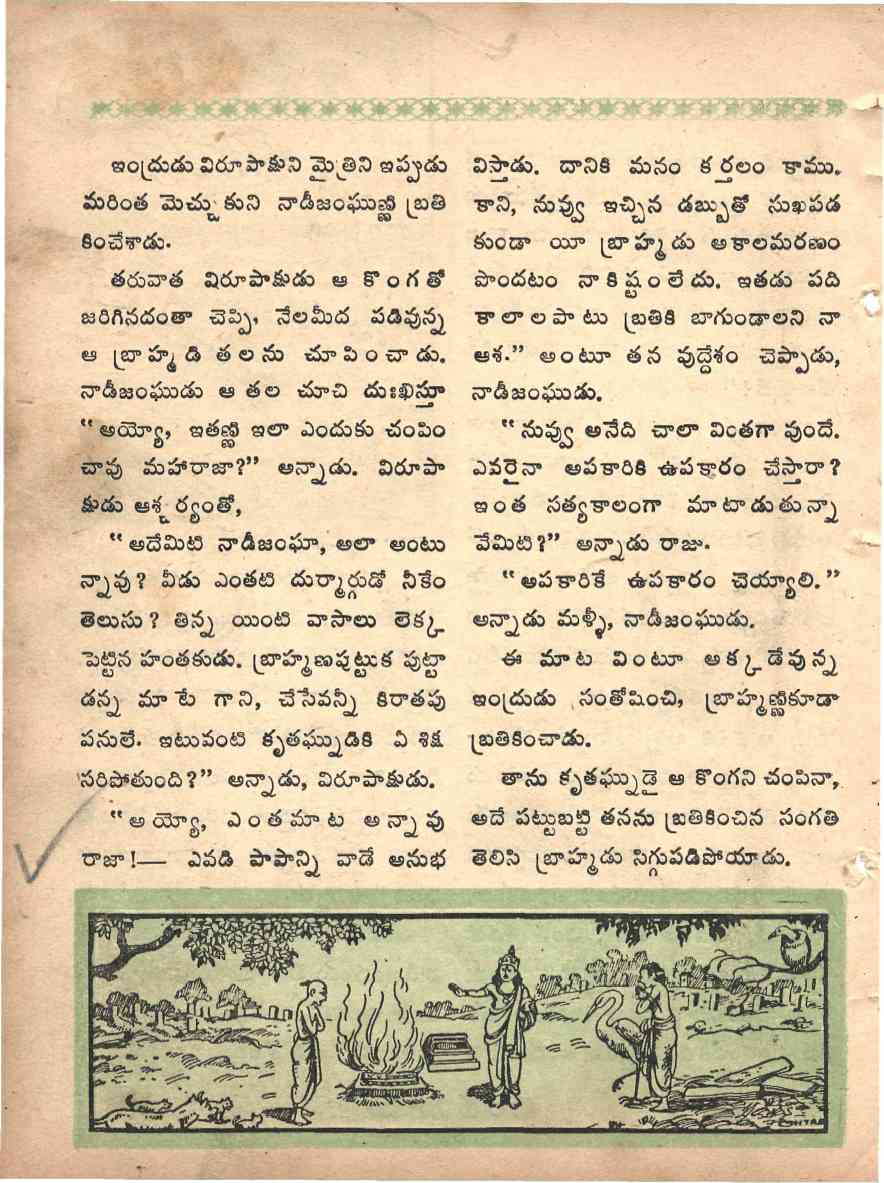 ఇంద్రుడు విరూపాక్షుని మైత్రిని ఇప్పుడు
మరింత మెచ్చుకుని నాడీజంఘుణ్ణి బ్రతి
కించేశాడు.
తరువాత విరూపాక్షుడు ఆ కొంగతో
జరిగినదంతా చెప్పి, నేలమీద పడివున్న
ఆ బ్రాహ్మడి తలను చూపించాడు.
నాడీజంఘుడు ఆ తల చూచి దుఃఖిస్తూ
“అయ్యో, ఇతణ్ణి ఇలా ఎందుకు చంపిం
చావు మహారాజా?” అన్నాడు. విరూపా
క్షుడు ఆశ్చర్యంతో,
“అదేమిటి నాడీజంఘా, అలా అంటు
న్నావు? వీడు ఎంతటి దుర్మార్గుడో నీకేం
తెలుసు? తిన్న యింటి వాసాలు లెక్క
పెట్టిన హంతకుడు. బ్రాహ్మణపుట్టుక పుట్టా
డన్న మాటే గాని, చేసేవన్నీ కిరాతపు
పనులే. ఇటువంటి కృతఘ్నుడికి ఏ శిక్ష
సరిపోతుంది?” అన్నాడు, విరూపాక్షుడు.
“అయ్యో, ఎంతమాట అన్నావు
రాజా!— ఎవడి పాపాన్ని వాడే అనుభ
విస్తాడు. దానికి మనం కర్తలం కాము.
కాని, నువ్వు ఇచ్చిన డబ్బుతో సుఖపడ
కుండా యీ బ్రాహ్మడు అకాలమరణం
పొందటం నాకిష్టంలేదు. ఇతడు పది
కాలాలపాటు బ్రతికి బాగుండాలని నా
ఆశ.” అంటూ తన వుద్దేశం చెప్పాడు,
నాడీజంఘుడు.
“నువ్వు అనేది చాలా వింతగా వుందే.
ఎవరైనా అపకారికి ఉపకారం చేస్తారా?
ఇంత సత్యకాలంగా మాటాడుతున్నా
వేమిటి?” అన్నాడు రాజు.
“అపకారికే ఉపకారం చెయ్యాలి.”
అన్నాడు మళ్ళీ, నాడీజంఘుడు.
ఈ మాట వింటూ అక్కడేవున్న
ఇంద్రుడు సంతోషించి, బ్రాహ్మణ్ణికూడా
బ్రతికించాడు.
తాను కృతఘ్నుడై ఆ కొంగని చంపినా,
అదే పట్టుబట్టి తనను బ్రతికించిన సంగతి
తెలిసి బ్రాహ్మడు సిగ్గుపడిపోయాడు.